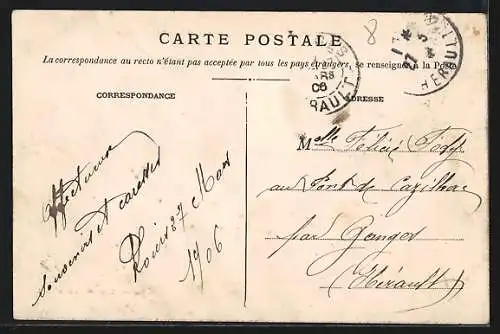 8
CARTE POSTALE
La correspondance au recto n'étant pas acceptée par tous les pays étrangers, se renseigner à la Poste
CORRESPONDANCE
ADRESSE
RS
06
RAULT
17
HÉRAULT
Affectueux
souvenirs et caresses
Louis 27 Mars
1906
Melle Félicie
au Pont de Cazilhac
par Ganges
(Hérault)